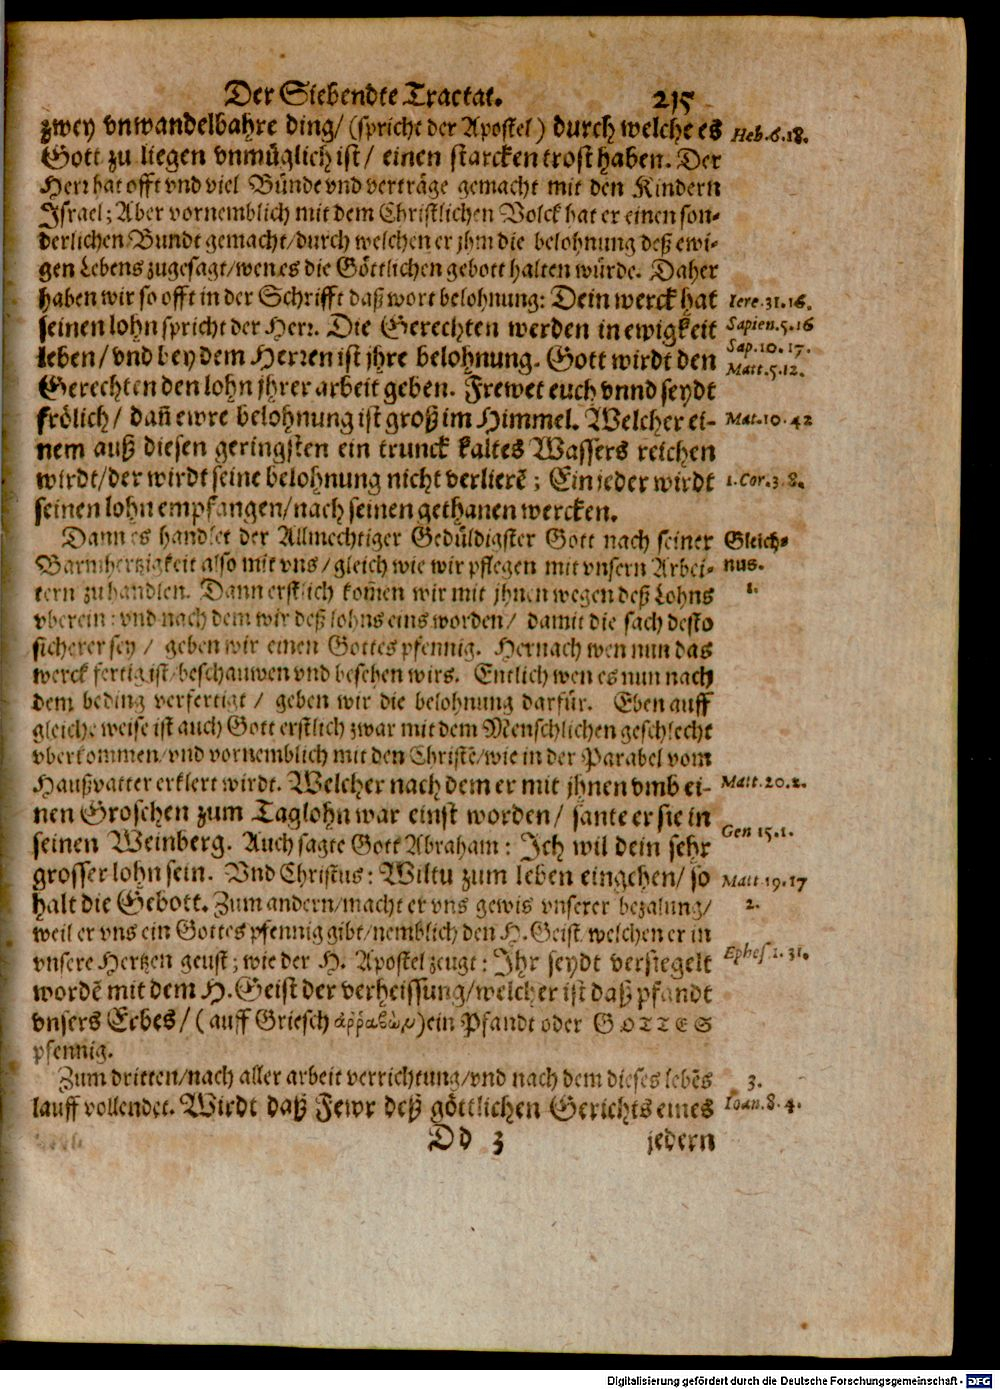 Der Siebendte Tractat. 215
zwey vnwandelbahre ding/ (spricht der Apostel) durch welche es Heb. 6. 18.
Gott zu liegen vnmüglich ist/ einen starcken trost haben. Der
Herr hat offt vnd viel Bünde vnd verträge gemacht mit den Kindern
Israel; Aber vornemblich mit dem Christlichen Volck hat er einen son-
derlichen Bundt gemacht/durch welchen er jhm die belohnung deß ewi-
gen Lebens zugesagt/wen es die Göttlichen gebott halten würde. Daher
haben wir so offt in der Schrifft daß wort belohnung: Dein werck hat Iere. 31. 16.
seinen lohn spricht der Herr. Die Gerechten werden in ewigkeit Sapien. 5. 16
leben/ vnd bey dem Herren ist jhre belohnung. Gott wirdt den Sap. 10. 17.
Gerechten den lohn jhrer arbeit geben. Frewet euch vnnd seydt Matt. 5. 12.
frölich/ dañ ewre belohnung ist groß im Himmel. Welcher ei- Mat. 10. 42
nem auß diesen geringsten ein trunck kaltes Wassers reichen
wirdt/der wirdt seine belohnung nicht verlierē; Ein jeder wirdt 1. Cor. 3. 8.
seinen lohn empfangen/nach seinen gethanen wercken.
Dann es handlet der Allmechtiger Gedüldigster Gott nach seiner Gleich-
Barmhertzigkeit also mit vns/ gleich wie wir pflegen mit vnsern Arbei- nus.
tern zu handlen. Dann erstlich kom̃en wir mit jhnen wegen deß Lohns 1.
vberein: vnd nach dem wir deß lohns eins worden/ damit die sach desto
sicherer sey/ geben wir einen Gottespfennig. Hernach wen nun das
werck fertig ist/beschauwen vnd besehen wirs. Entlich wen es nun nach
dem beding verfertigt/ geben wir die belohnung darfür. Eben auff
gleiche weise ist auch Gott erstlich zwar mit dem Menschlichen geschlecht
vberkommen/vnd vornemblich mit den Christē/wie in der Parabel vom
Haußvatter erklert wirdt. Welcher nach dem er mit jhnen vmb ei- Matt. 20. 2.
nen Groschen zum Taglohn war einst worden/ sante er sie in
seinen Weinberg. Auch sagte Gott Abraham: Ich wil dein sehr Gen 15. 1.
grosser lohn sein. Vnd Christus: Wiltu zum leben eingehen/ so Matt 19. 17
halt die Gebott. Zum andern/macht er vns gewis vnserer bezalung/ 2.
weil er vns ein Gottespfennig gibt/nemblich den H. Geist welchen er in
vnsere Hertzen geust; wie der H. Apostel zeugt: Ihr seydt versiegelt Ephes. 1. 31.
wordē mit dem H. Geist der verheissung/welcher ist daß pfandt
vnsers Erbes/ (auff Griesch ἀῤῥαβὼν) ein Pfandt oder GOTTES
pfennig.
Zum dritten/nach aller arbeit verrichtung/vnd nach dem dieses lebēs 3.
lauff vollendet. Wirdt daß Fewr deß göttlichen Gerichts eines Ioan. 8. 4.
Dd 3 jedern
Digitalisierung gefördert durch die Deutsche Forschungsgemeinschaft - DFG